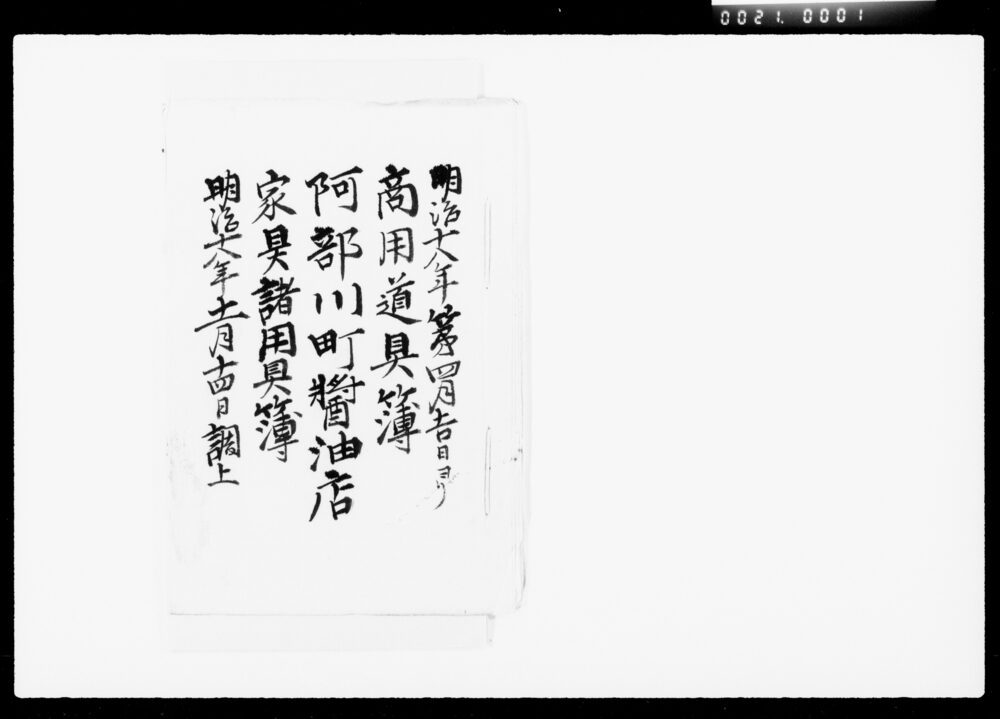 0021.0001
明治十八年第四月吉日ヨリ
商用道具簿
阿部川町醤油店
家具諸用具簿
明治十八年十一月十四日調上